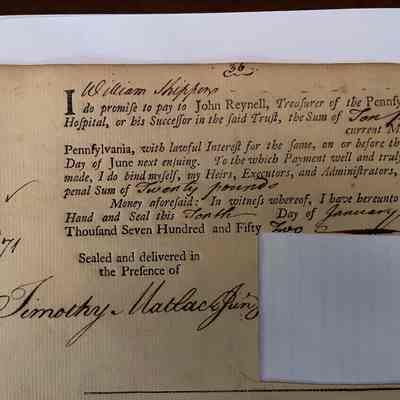 36
I William Shippen
do promise to pay to John Reynell, Treasurer of the Pennsy
Hospital, or his Successor in the said Trust, the Sum of Ten
current M
Pennsylvania, with lawful Interest for the same, on or before th
Day of June next ensuing. To the which Payment well and truly
made, I do bind myself, my Heirs, Executors, and Administrators,
penal Sum of Twenty pounds
Money aforesaid: In witness whereof, I have hereunto
Hand and Seal this Tenth Day of January
Thousand Seven Hundred and Fifty Two
71
Sealed and delivered in
the Presence of
Timothy Matlack Jun